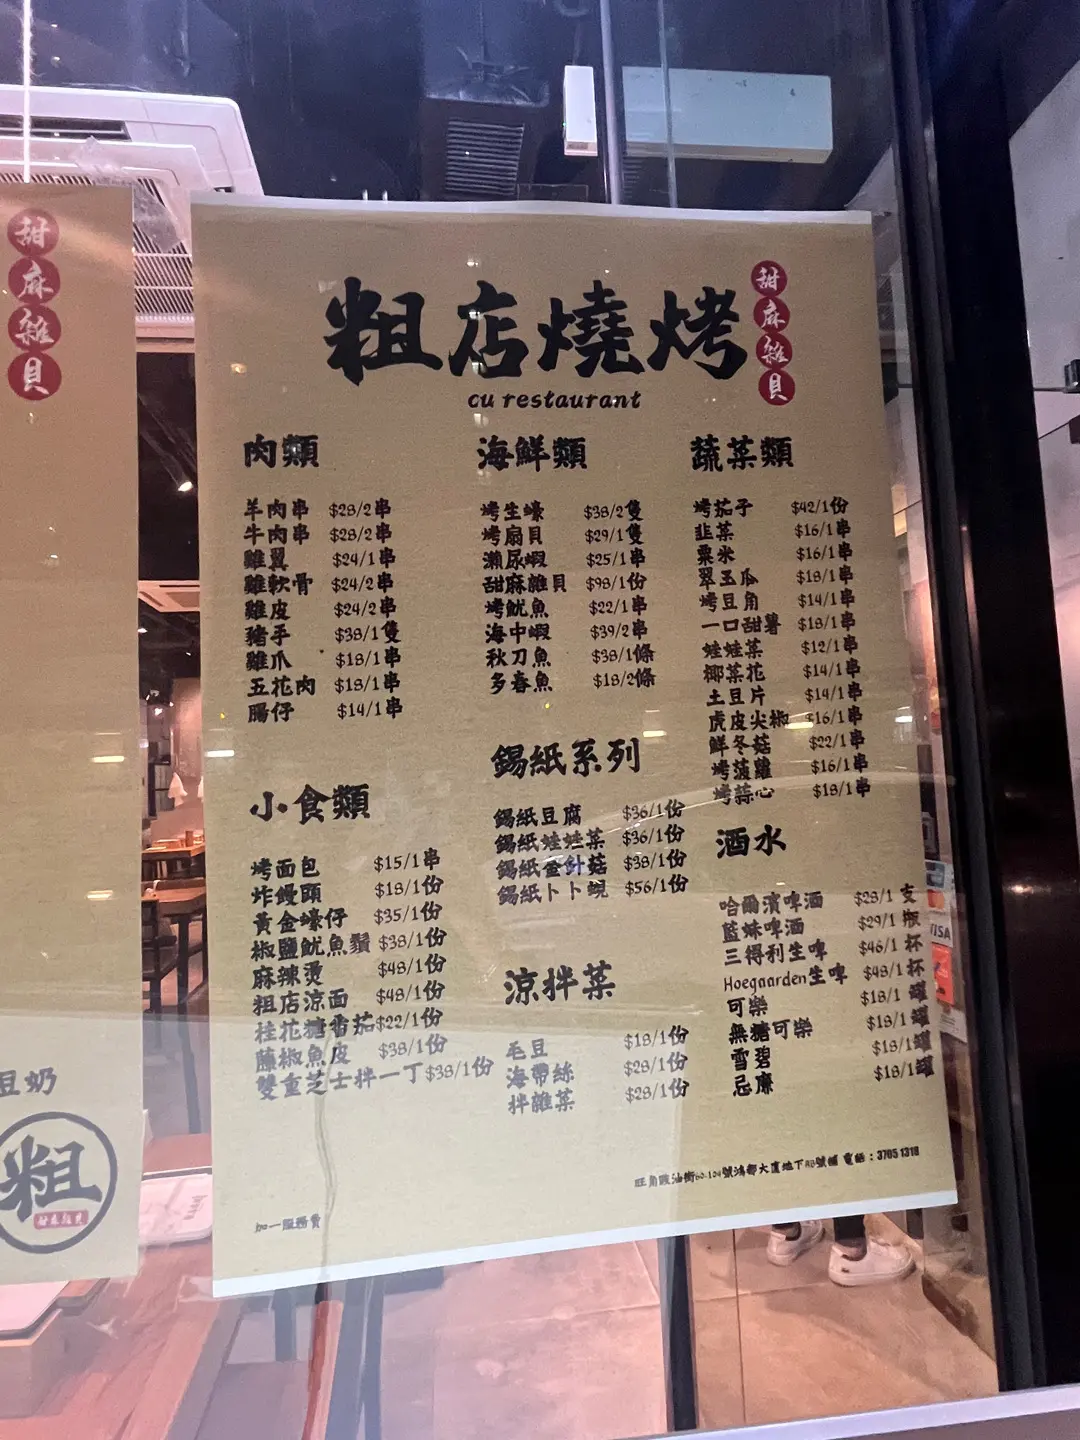 甜麻雜貝
粗店燒烤
甜麻雜貝
cu restaurant
肉類
羊肉串 $28/2串
牛肉串 $28/2串
雞翼 $24/1串
雞軟骨 $24/2串
雞皮 $24/2串
豬手 $38/1隻
雞爪 $18/1串
五花肉 $18/1串
腸仔 $14/1串
小食類
烤面包 $15/1串
炸饅頭 $18/1份
黃金蠔仔 $35/1份
椒鹽魷魚鬚 $38/1份
麻辣燙 $48/1份
粗店涼面 $48/1份
桂花糖番茄 $22/1份
藤椒魚皮 $38/1份
雙重芝士拌一丁 $38/1份
海鮮類
烤生蠔 $38/2隻
烤扇貝 $29/1隻
瀨尿蝦 $25/1串
甜麻雜貝 $98/1份
烤魷魚 $22/1串
海中蝦 $39/2串
秋刀魚 $38/1條
多春魚 $18/2條
錫紙系列
錫紙豆腐 $36/1份
錫紙娃娃菜 $36/1份
錫紙金針菇 $38/1份
錫紙卜卜蜆 $56/1份
涼拌菜
毛豆 $18/1份
海帶絲 $28/1份
拌雜菜 $28/1份
蔬菜類
烤茄子 $42/1份
韭菜 $16/1串
粟米 $16/1串
翠玉瓜 $18/1串
烤豆角 $14/1串
一口甜薯 $18/1串
娃娃菜 $12/1串
椰菜花 $14/1串
土豆片 $14/1串
虎皮尖椒 $16/1串
鮮冬菇 $22/1串
烤菠蘿 $16/1串
烤蒜心 $18/1串
酒水
哈爾濱啤酒 $28/1 支
藍妹啤酒 $29/1 樽
三得利生啤 $46/1 杯
Hoegaarden生啤 $48/1 杯
可樂 $18/1 罐
無糖可樂 $18/1 罐
雪碧 $18/1罐
忌廉 $18/1罐
旺角豉油街60-104號鴻都大廈地下 號舖 電話：3705 1318
加一服務費
豆奶
粗
甜麻雜貝
VISA